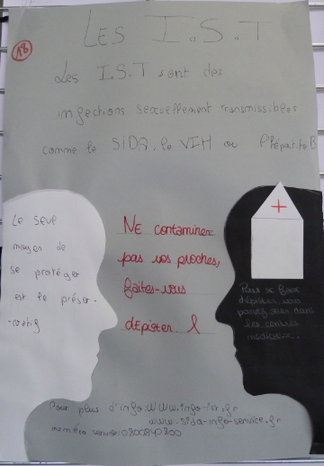 18
LES I.S.T
Les I.S.T sont des
infections sexuellement transmissibles
comme le SIDA, le VIH ou l'hépatite B
Le seul
moyen de
se protéger
est le préser-
-vatif
NE contaminez
pas vos proches,
faites-vous
dépister !
Pour se faire
dépister, vous
pouvez aller dans
les centres
médicaux.
Pour plus d'info www.info-ist.fr
www.sida-info-service.fr
numéro service: 0800840800